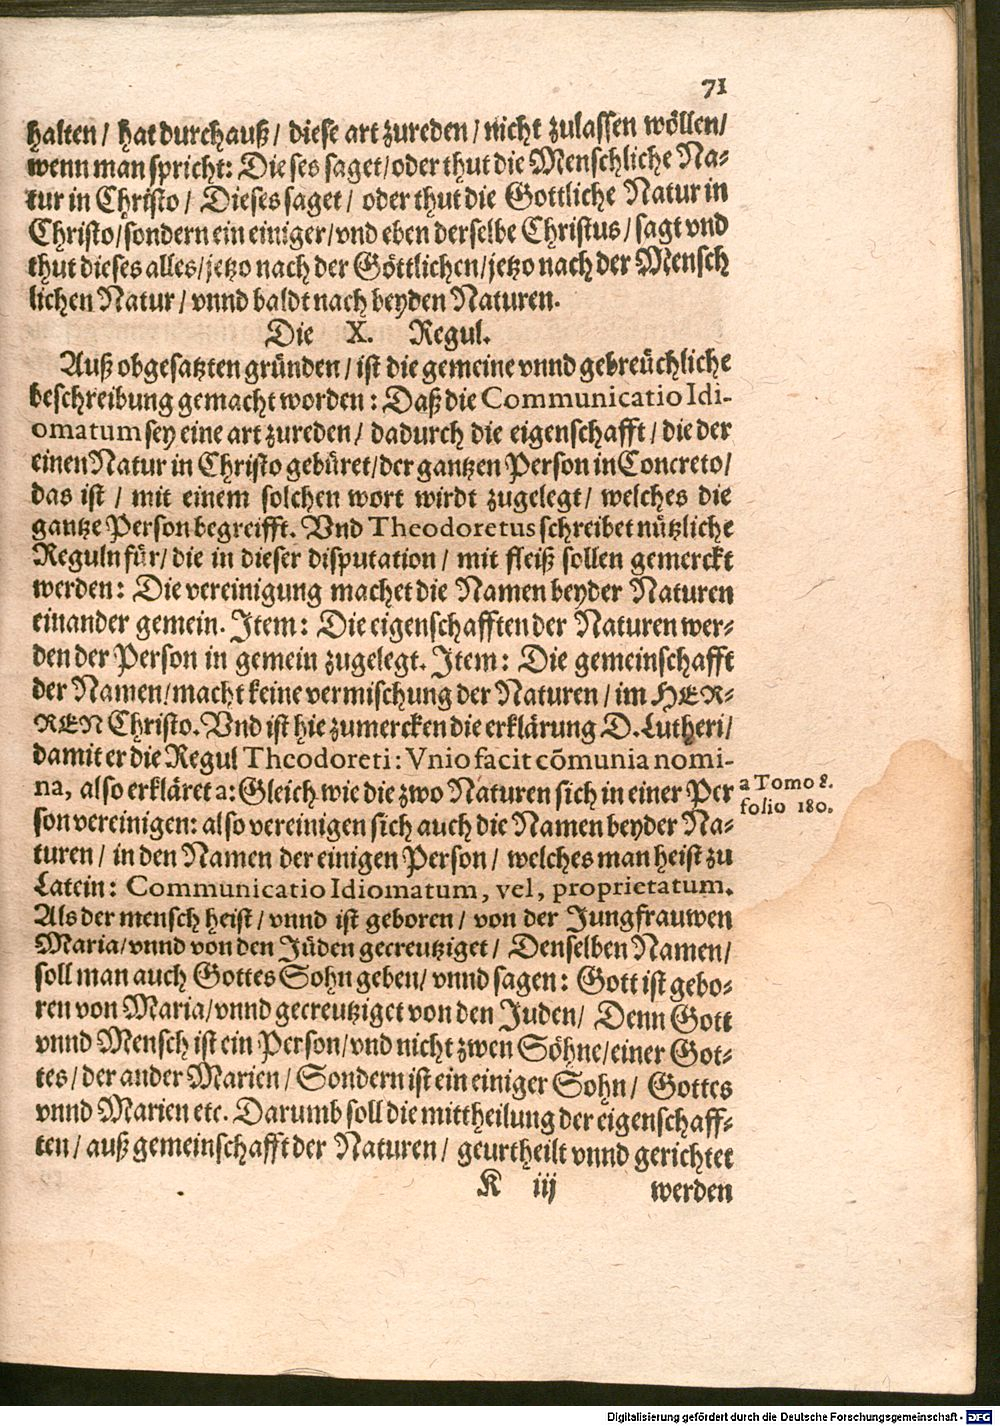 71
halten/ hat durchauß/ diese art zureden/ nicht zulassen wöllen/
wenn man spricht: Dieses saget/oder thut die Menschliche Na-
tur in Christo/ Dieses saget/ oder thut die Gottliche Natur in
Christo/sondern ein einiger/vnd eben derselbe Christus/ sagt vnd
thut dieses alles/jetzo nach der Göttlichen/jetzo nach der Mensch
lichen Natur/ vnnd baldt nach beyden Naturen.
Die X. Regul.
Auß obgesatzten gründen/ ist die gemeine vnnd gebreüchliche
beschreibung gemacht worden: Daß die Communicatio Idi-
omatum sey eine art zureden/ dadurch die eigenschafft/ die der
einen Natur in Christo gebüret/der gantzen Person in Concreto/
das ist/ mit einem solchen wort wirdt zugelegt/ welches die
gantze Person begreifft. Vnd Theodoretus schreibet nützliche
Reguln für/ die in dieser disputation/ mit fleiß sollen gemerckt
werden: Die vereinigung machet die Namen beyder Naturen
einander gemein. Item: Die eigenschafften der Naturen wer-
den der Person in gemein zugelegt. Item: Die gemeinschafft
der Namen/macht keine vermischung der Naturen/ im HER-
REN Christo. Vnd ist hie zumercken die erklärung D. Lutheri/
damit er die Regul Theodoreti: Vnio facit cõmunia nomi-
na, also erkläret a: Gleich wie die zwo Naturen sich in einer Per
son vereinigen: also vereinigen sich auch die Namen beyder Na-
turen/ in den Namen der einigen Person/ welches man heist zu
Latein: Communicatio Idiomatum, vel, proprietatum.
Als der mensch heist/ vnnd ist geboren/ von der Jungfrauwen
Maria/vnnd von den Jüden gecreutziget/ Denselben Namen/
soll man auch Gottes Sohn geben/ vnnd sagen: Gott ist gebo-
ren von Maria/vnnd gecreutziget von den Juden/ Denn Gott
vnnd Mensch ist ein Person/vnd nicht zwen Söhne/einer Got-
tes/ der ander Marien/ Sondern ist ein einiger Sohn/ Gottes
vnnd Marien etc. Darumb soll die mittheilung der eigenschaff-
ten/ auß gemeinschafft der Naturen/ geurtheilt vnnd gerichtet
K iij werden
a Tomo 8.
folio 180.
Digitalisierung gefördert durch die Deutsche Forschungsgemeinschaft - DFG